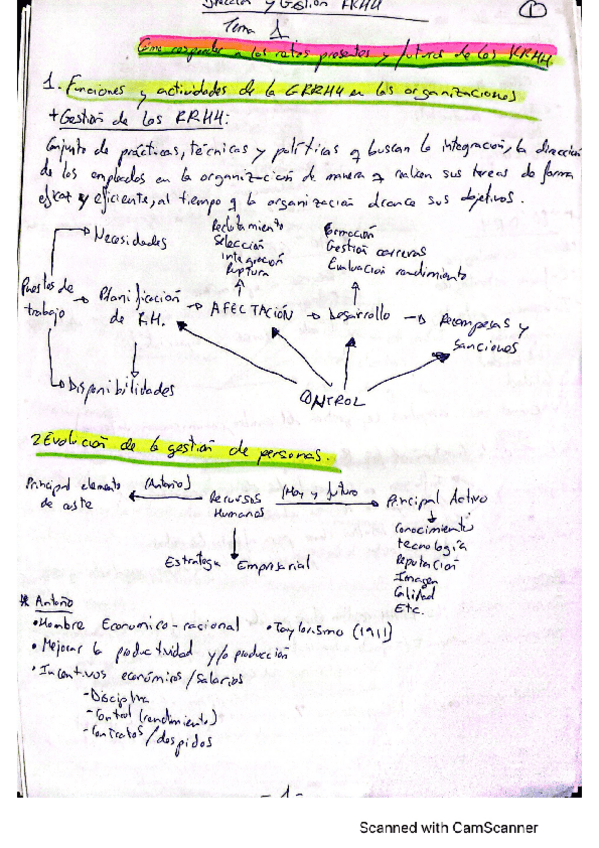 Dirección y Gestión RRHH
1
Tema 1
Como responder a los retos presentes y futuros de los RRHH.
1. Funciones y actividades de la GRRHH en las organizaciones
+ Gestión de los RRHH:
Conjunto de prácticas, técnicas y políticas q buscan la integración, la dirección
de los empleados en la organización de manera q realicen sus tareas de forma
eficaz y eficiente, al tiempo q la organización alcance sus objetivos.
Necesidades
Reclutamiento
Selección
Integración
Ruptura
Formación
Gestión carreras
Evaluación rendimiento
Puestos de
trabajo
Planificación
de RH.
AFECTACIÓN
Desarrollo
Recompesas y
sanciones
Disponibilidades
CONTROL
2 Evolución de la gestión de personas.
Principal elemento
de coste
(Antaño)
Recursos
Humanos
(Hoy y futuro
Principal Activo
Conocimiento
tecnología
Reputación
Imagen
Calidad
Etc.
Estrategia Empresarial
* Antaño
• Hombre Económico-racional • Taylorismo (1911)
• Mejorar la productividad y/o producción
• Incentivos económicos/salarios
- Disciplina
- Control (rendimiento)
- Contratos/despidos
- 1 -
Scanned with CamScanner